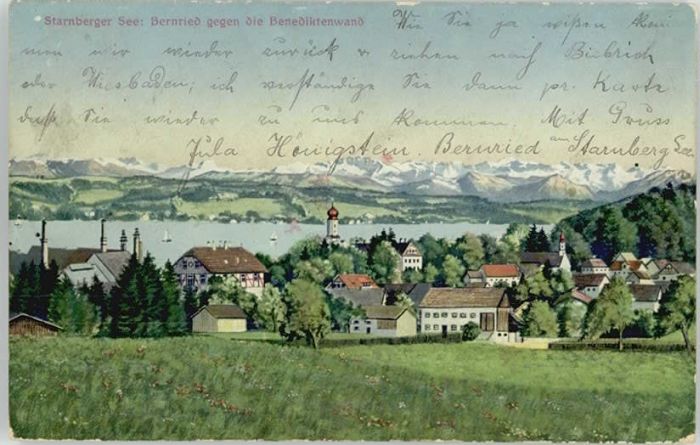 Starnberger See: Bernried gegen die Benediktenwand
Wie Sie ja wißen kom
men wir wieder zurück & ziehen nach Biebrich
oder Wiesbaden; ich verständige Sie dann pr. Karte
daß Sie wieder zu uns kommen. Mit Gruss
Jula Hönigstein. Bernried am Starnberg See